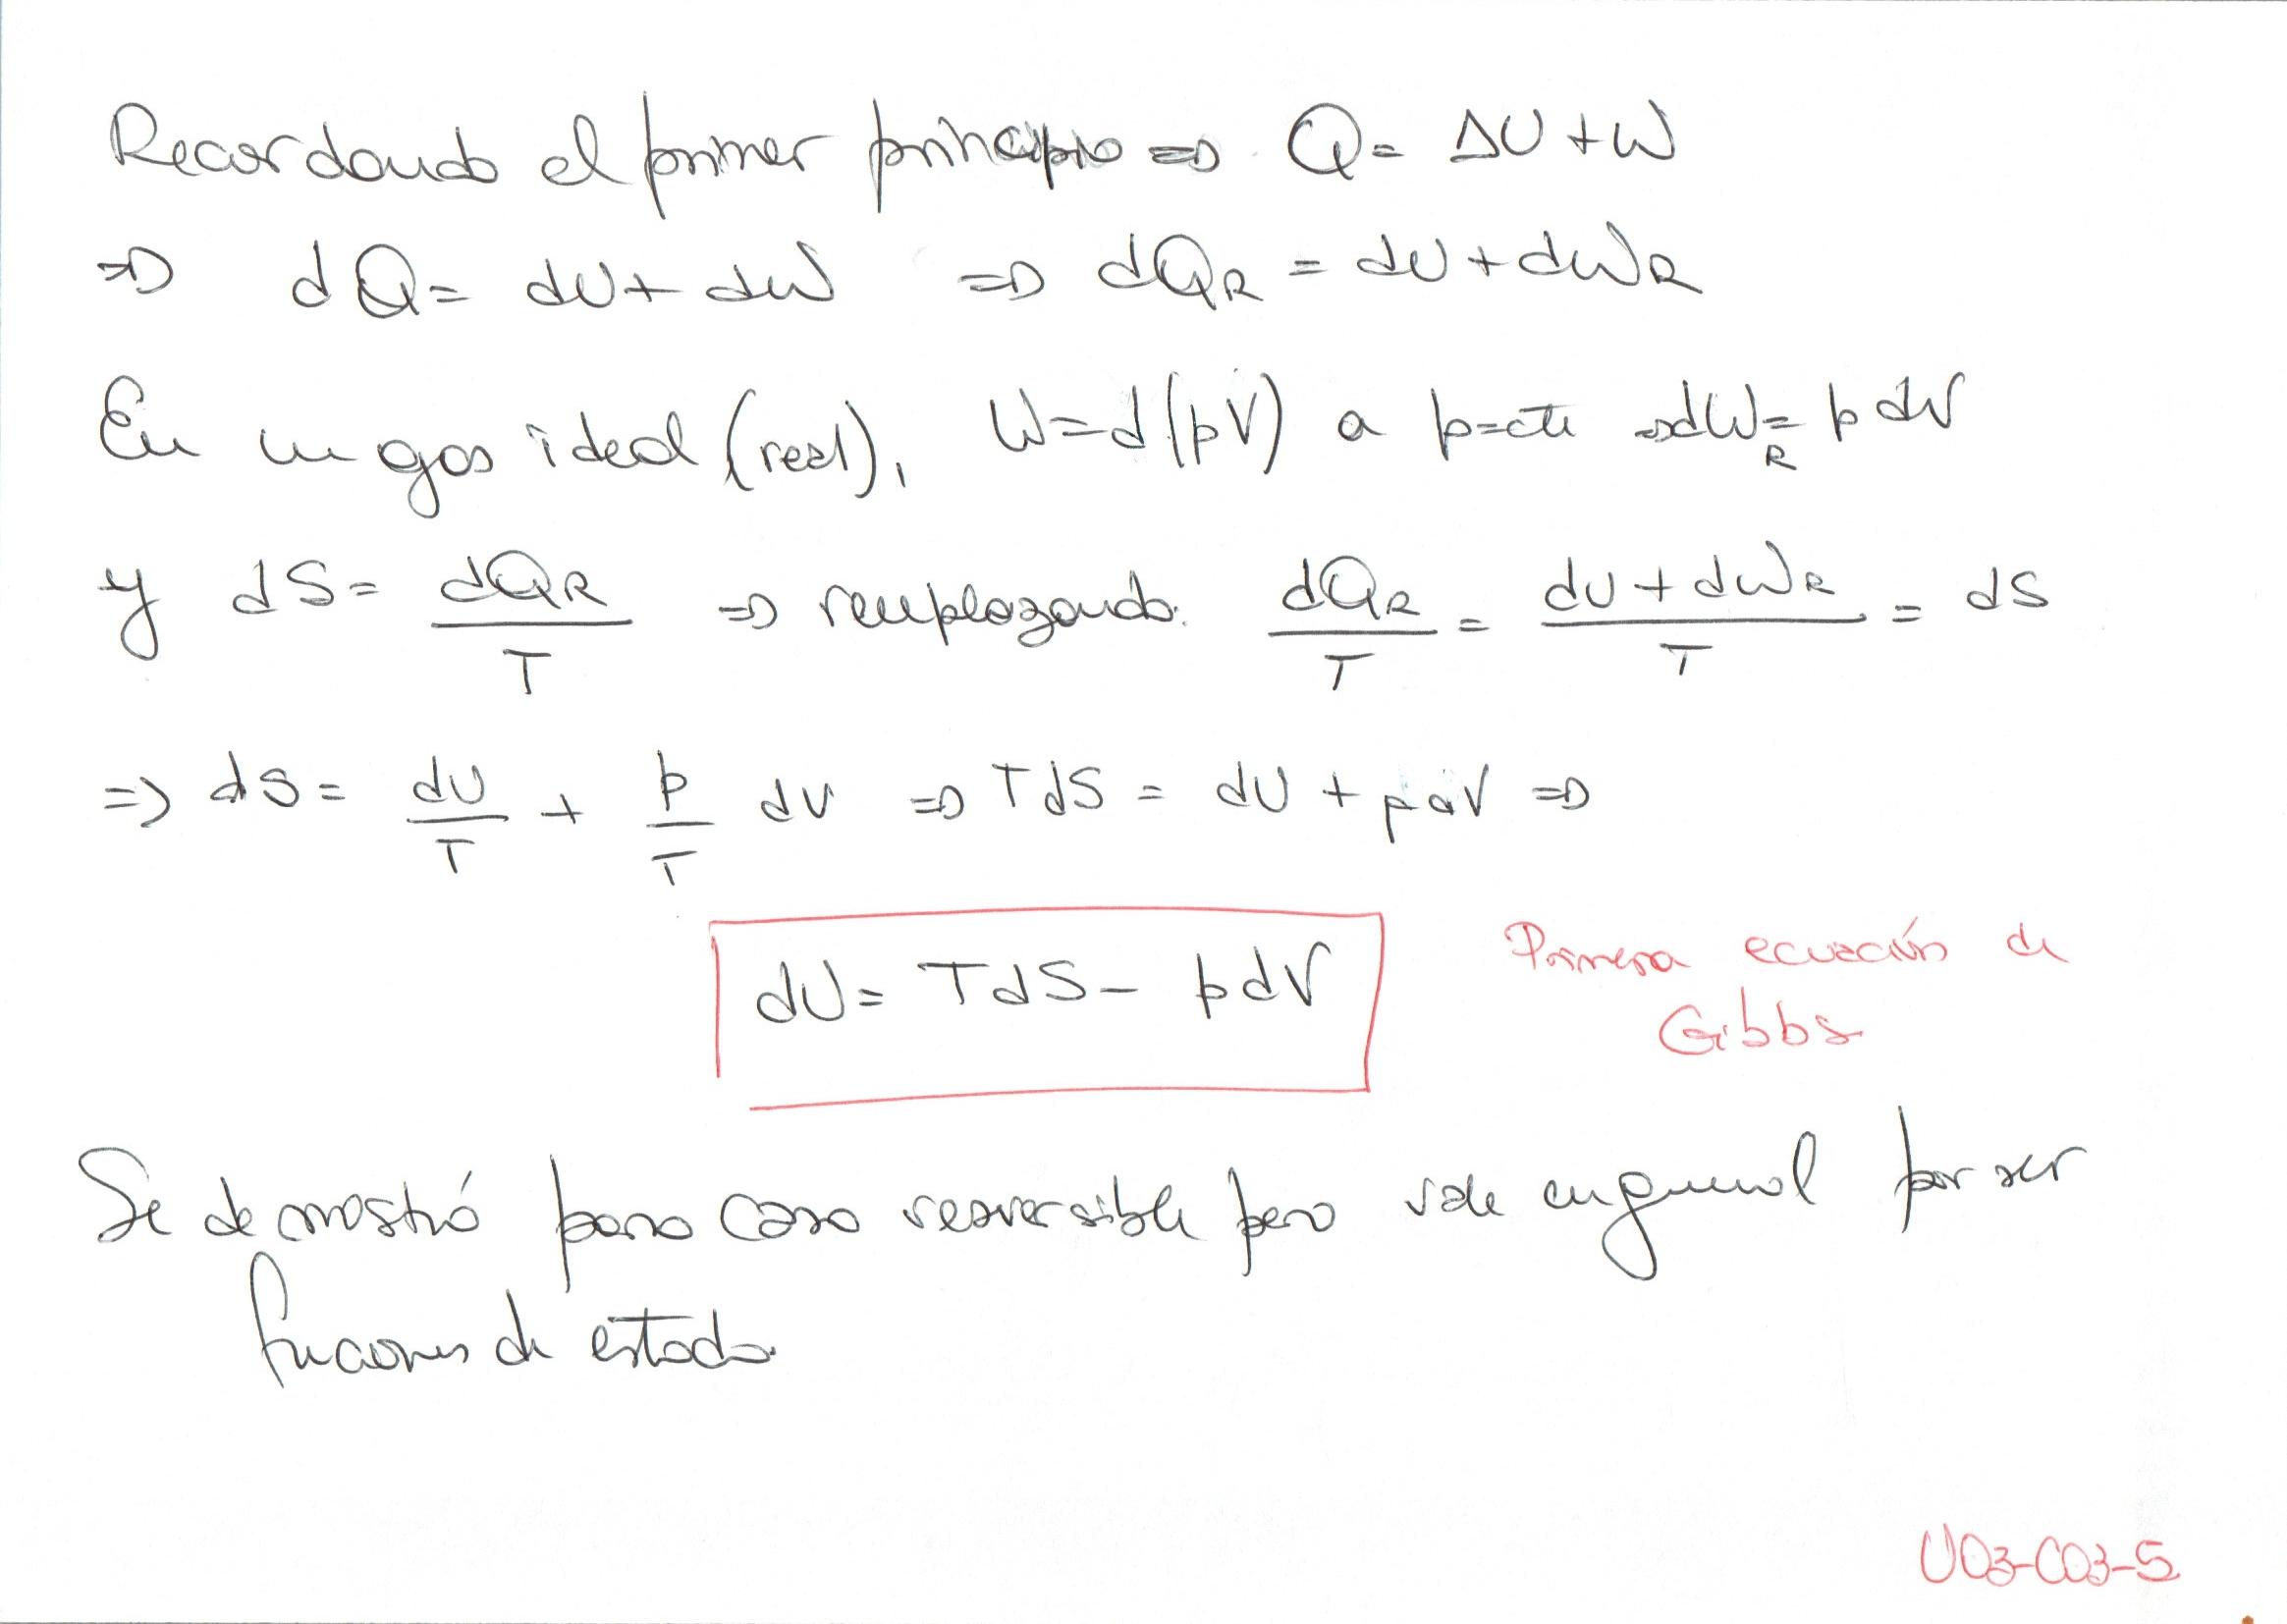 Recordando el primer principio ⇒ Q = ΔU + W
⇒ dQ = dU + dW ⇒ dQ_R = dU + dW_R
En un gas ideal (real), W = d(pV) a p=cte ⇒ dW_R = p dV
y dS = dQ_R / T ⇒ reemplazando: dQ_R / T = (dU + dW_R) / T = dS
⇒ dS = dU/T + p/T dV ⇒ TdS = dU + p dV ⇒
dU = TdS - pdV
Primera ecuación de
Gibbs
Se demostró para caso reversible pero vale en general por ser
funciones de estado.
U03-C03-5